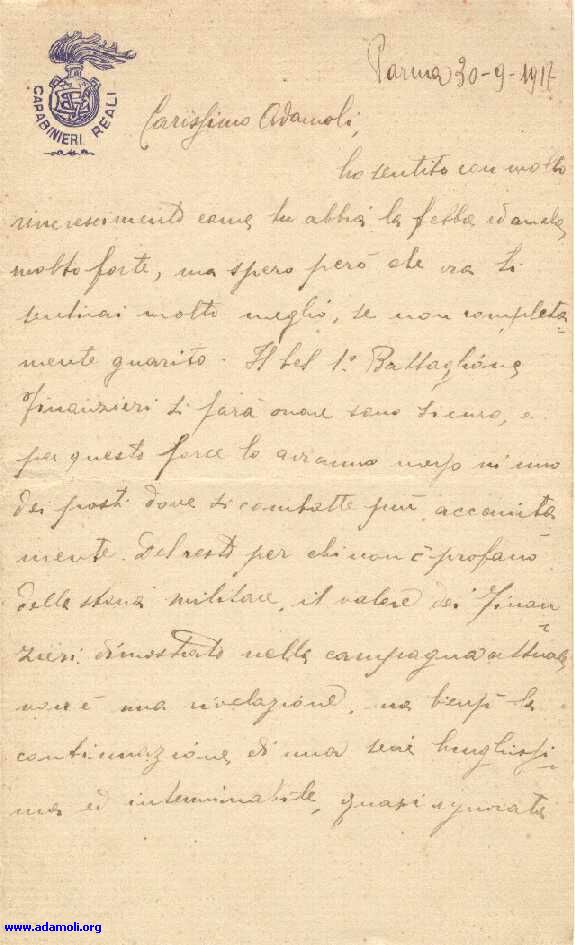 CARABINIERI REALI
Parma 30-9-1917
Carissimo Adamoli,
ho sentito con molto
rincrescimento come tu abbia la febbre ed anche
molto forte, ma spero però che ora ti
sentirai molto meglio, se non completa=
mente guarito. Il bel 1º Battaglione
Finanzieri si farà onore sono sicuro, e
per questo forse lo avranno messo in uno
dei posti dove si combatte più accanita
mente. Del resto per chi non è profano
della storia militare, il valore dei Finan
zieri dimostrato nella campagna attuale
non è una rivelazione, ma bensì la
continuazione di una serie lunghissi
ma ed interminabile, quasi ignorata
www.adamoli.org